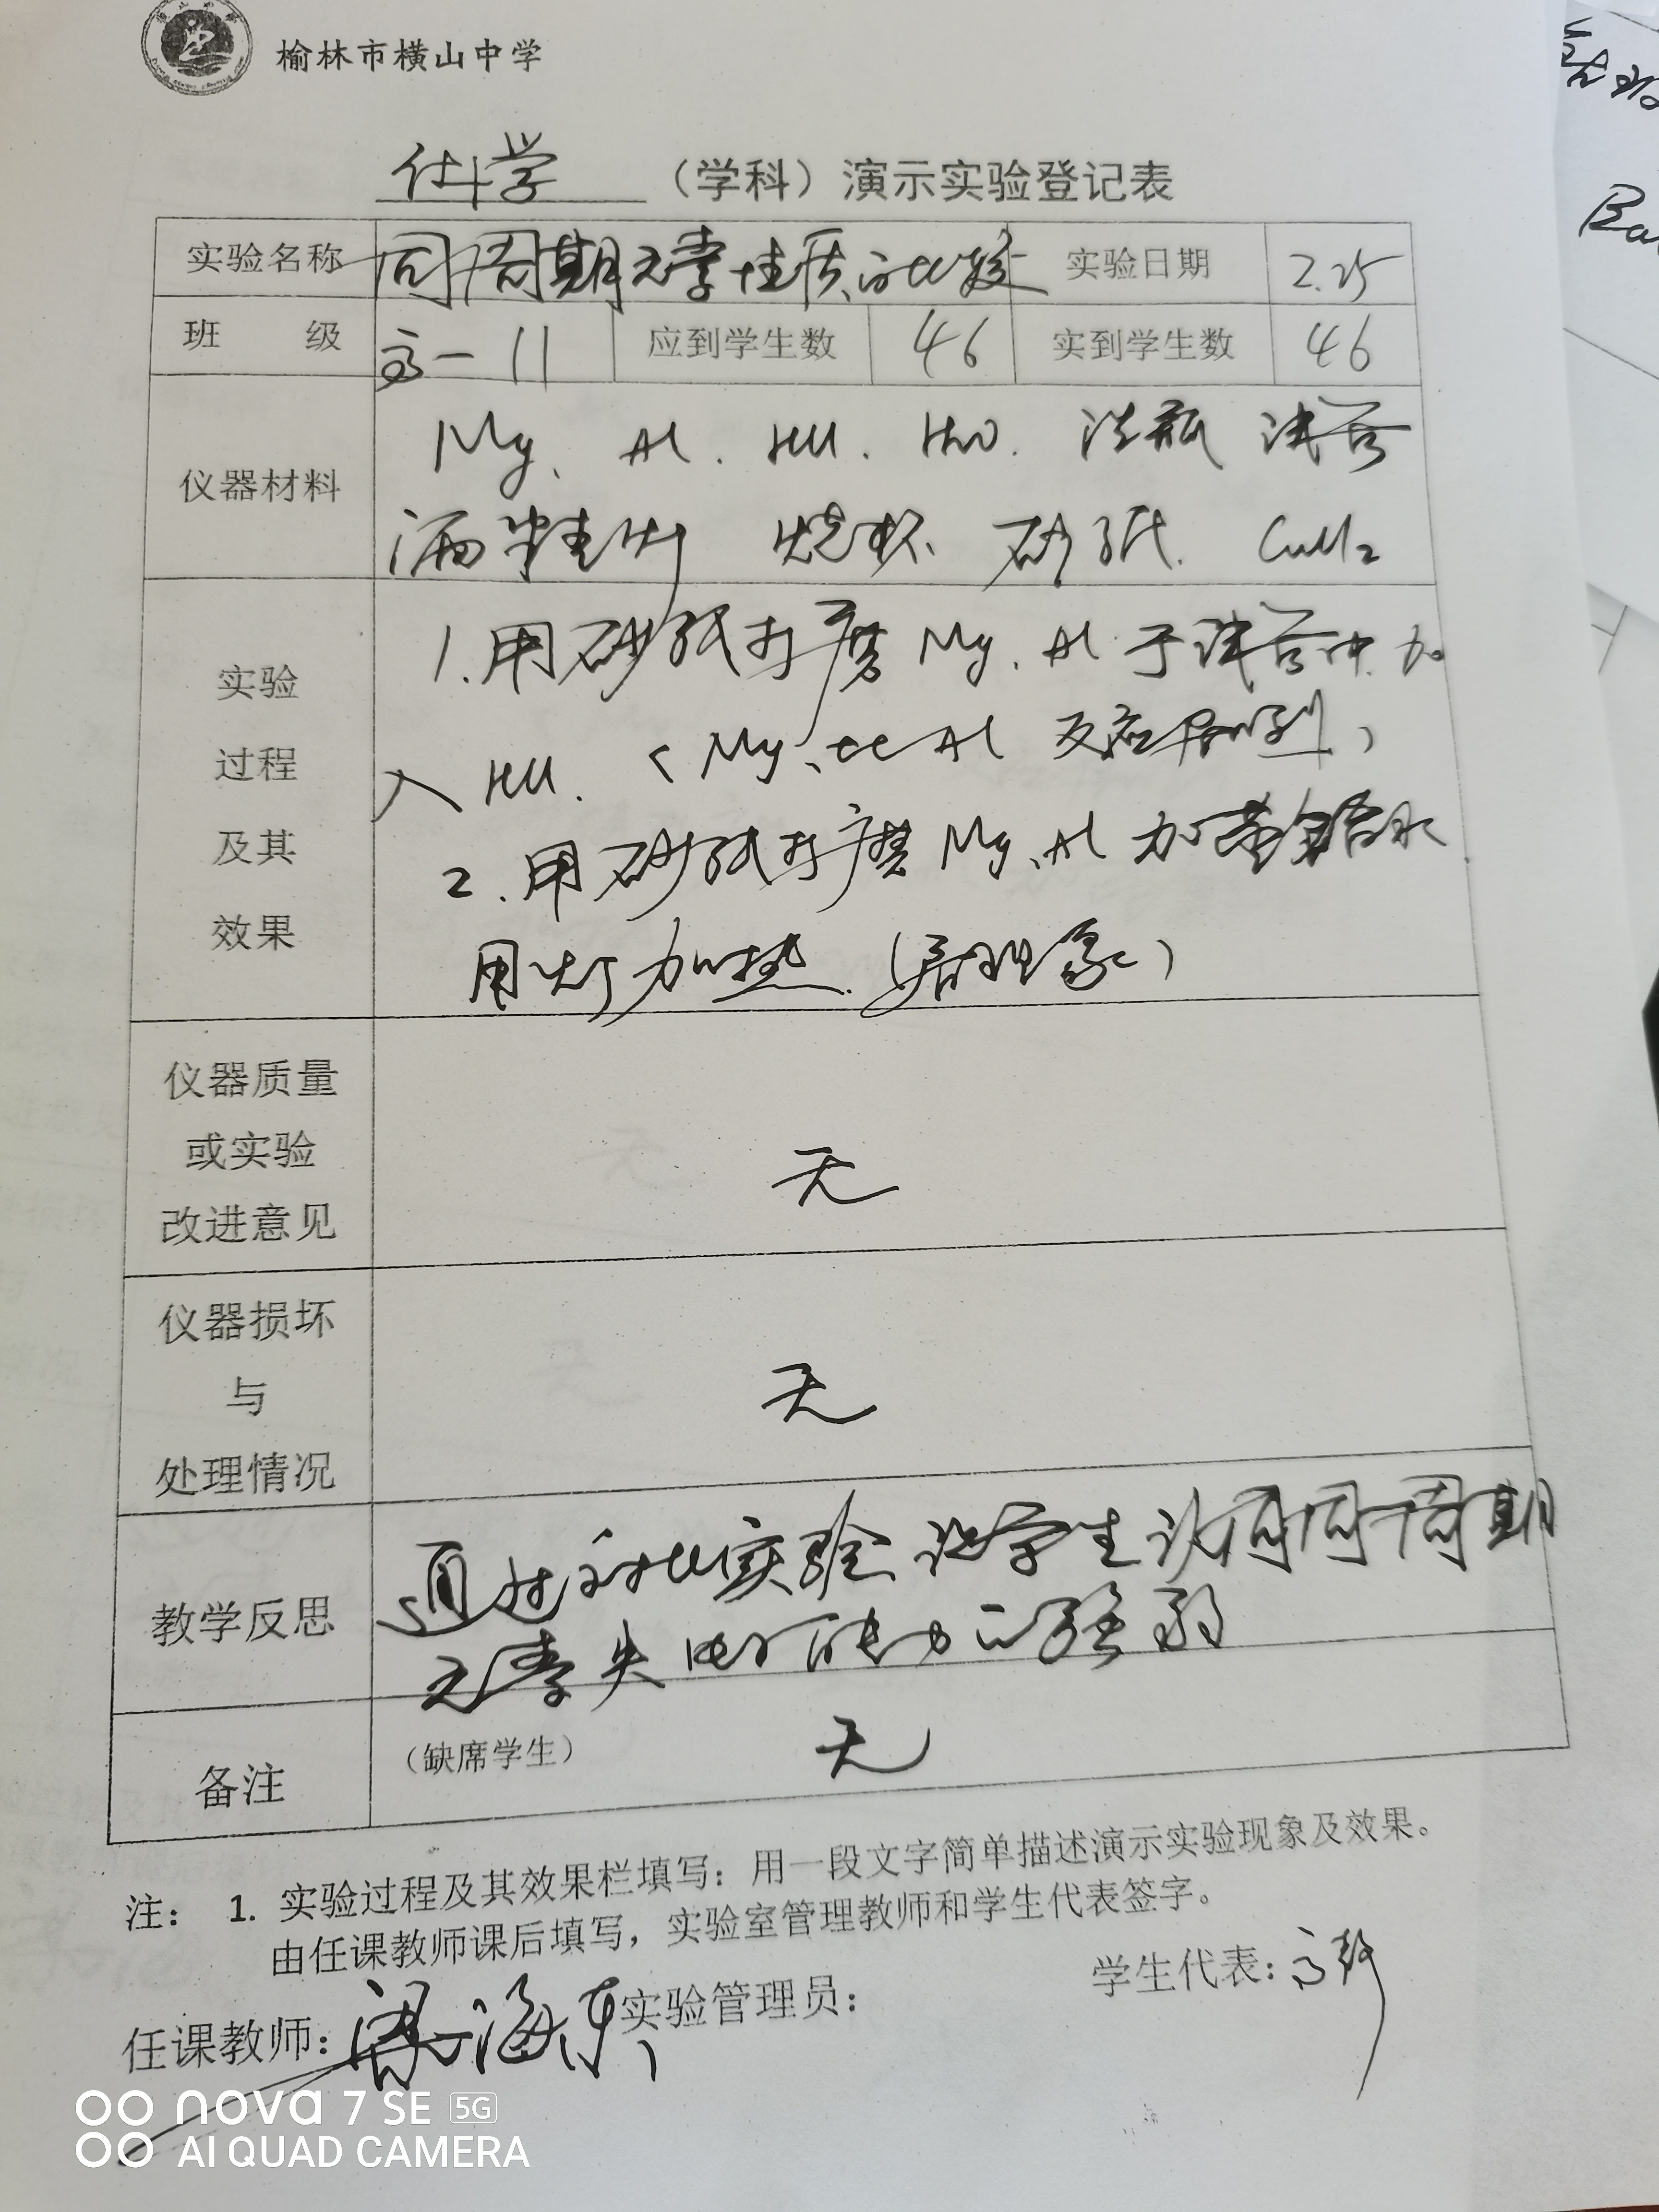 榆林市横山中学
化学（学科）演示实验登记表
实验名称 同周期元素性质的比较 实验日期 2.25
班 级 高一 11 应到学生数 46 实到学生数 46
仪器材料
Mg、Al. HCl. H2O. 洗瓶 试管
酒精灯 烧杯 砂纸. CuCl2
实验
过程
及其
效果
1.用砂纸打磨 Mg、Al 于试管中.加
入 HCl. (Mg 比 Al 反应剧烈)
2.用砂纸打磨 Mg、Al 加蒸馏水
用灯加热.(看现象)
仪器质量
或实验
改进意见
无
仪器损坏
与
处理情况
无
教学反思
通过对比实验让学生认同同周期
元素失电子能力的强弱
备注 (缺席学生) 无
注： 1. 实验过程及其效果栏填写：用一段文字简单描述演示实验现象及效果。
由任课教师课后填写，实验室管理教师和学生代表签字。
任课教师：梁海东 实验管理员： 学生代表：高
nova 7 SE 5G
AI QUAD CAMERA